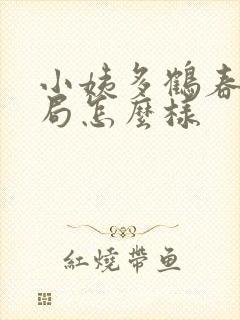 小姨多鶴春
局怎麼樣
紅燒帶鱼